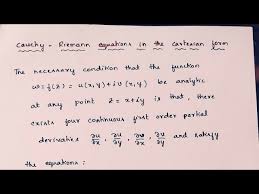 Cauchy - Riemann equations in the cartesian form
The necessary condition that the function
ω = f(z) = u(x,y) + i v (x,y) be analytic
at any point z = x+iy is that, there
exists four continuous first order partial
derivatives ∂u/∂x, ∂u/∂y, ∂v/∂x, ∂v/∂y and satisfy
the equations :